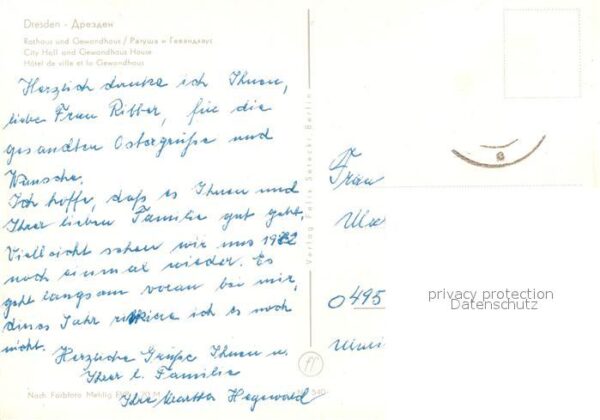 Dresden - Дрезден
Rathaus und Gewandhaus / Ратуша и Гевандхауз
City Hall and Gewandhaus House
Hôtel de ville et le Gewandhaus
Herzlich danke ich Ihnen,
liebe Frau Ribber, für die
gesandten Ostergrüße und
Wünsche.
Ich hoffe, daß es Ihnen und
Ihrer lieben Familie gut geht.
Vielleicht sehen wir uns 1982
noch einmal wieder. Es
geht langsam voran bei mir,
dieses Jahr riskiere ich es noch
nicht.
Herzliche Grüße Ihnen u.
Ihrer l. Familie
Ihre Martha Hegewald
Nach Farbfoto Mehlig
Verlag Felix Setecki Berlin
Frau
0495
privacy protection
Datenschutz